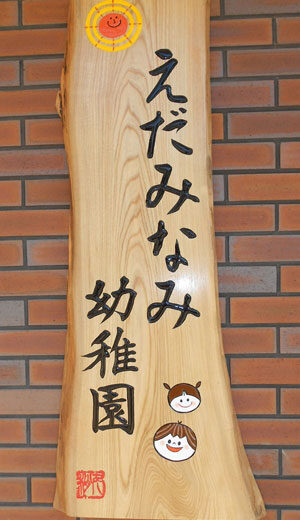 えだみなみ
幼稚園